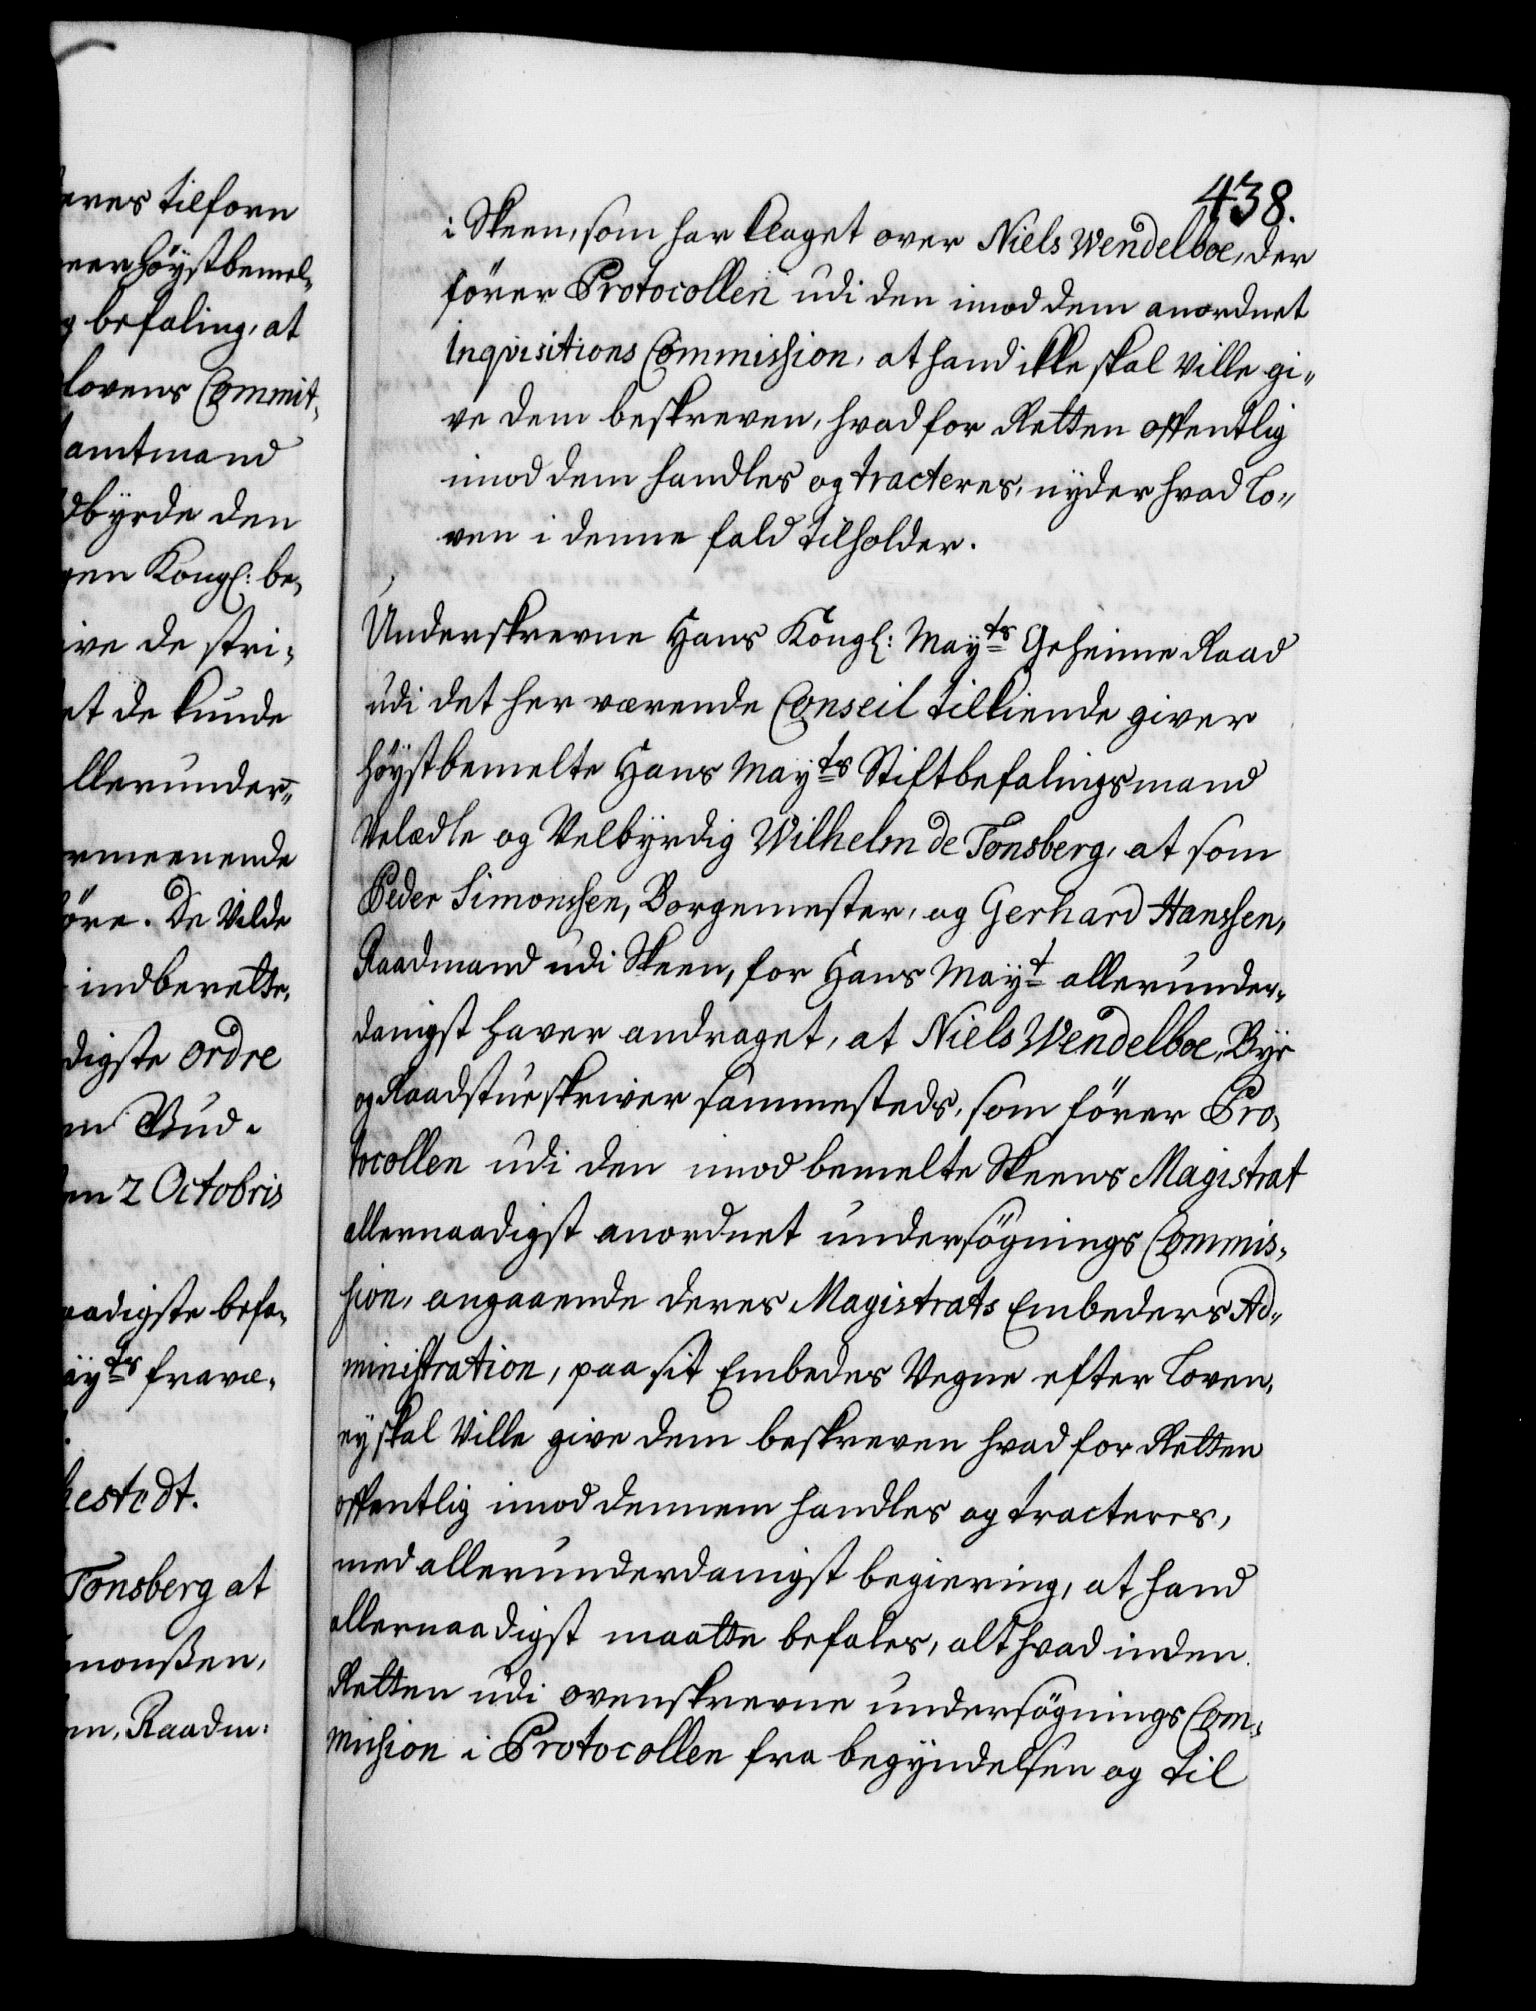 eres tilforn
neer höystbemel„
g befaling, at
lovens Commit„
amtmand
dbyrde den
gen Kongl: be„
ive de stri„
et de kunde
llerunder„
rmeenende
öre. De Vilde
indberette,
digste ordre
m Bud.
en 2 Octobris
aadigste befa„
aÿts fravæ„
hestedt.
Tonsberg at
monßen,
en, Raadm:
438.
i Skeen, som har klaget over Niels Wendelboe, der
fører Protocollen udi den imod dem anordnet
Inqvisitions Commission, at hand ikke skal Ville gi„
ve dem beskreven, hvad for Retten offentlig
imod dem handles og tracteres, nyder hvad Lo„
ven i denne fald tilholder.
Underskrevne Hans Kongl: Maÿts Geheime Raad
udi det her værende Conseil tilkiende giver
höystbemelte Hans Maÿts Stiftbefalingsmand
Velædle og Velbyrdig Wilhelm de Tonsberg, at som
Peder Simonssen, Borgemester, og Gerhard Hanssen,
Raadmand udi Skeen, for Hans Maÿt allerunder„
danigst haver andraget, at Niels Wendelboe, Bye
og Raadstueskriver sammesteds, som fører Pro„
tocollen udi den imod bemelte Skeens Magistrat
allernaadigst anordnet undersögnings Commis„
sion, angaaende deres Magistrats Embeders Ad„
ministration, paa sit Embedes Vegne efter Loven,
ey skal Ville give dem beskreven hvad for Retten
offentlig imod dennem handles og tracteres,
med allerunderdanigst begiering, at hand
allernaadigst maatte befales, alt hvad inden
Retten udi ovenskrevne undersögnings Com„
mission i Protocollen fra begyndelsen og til